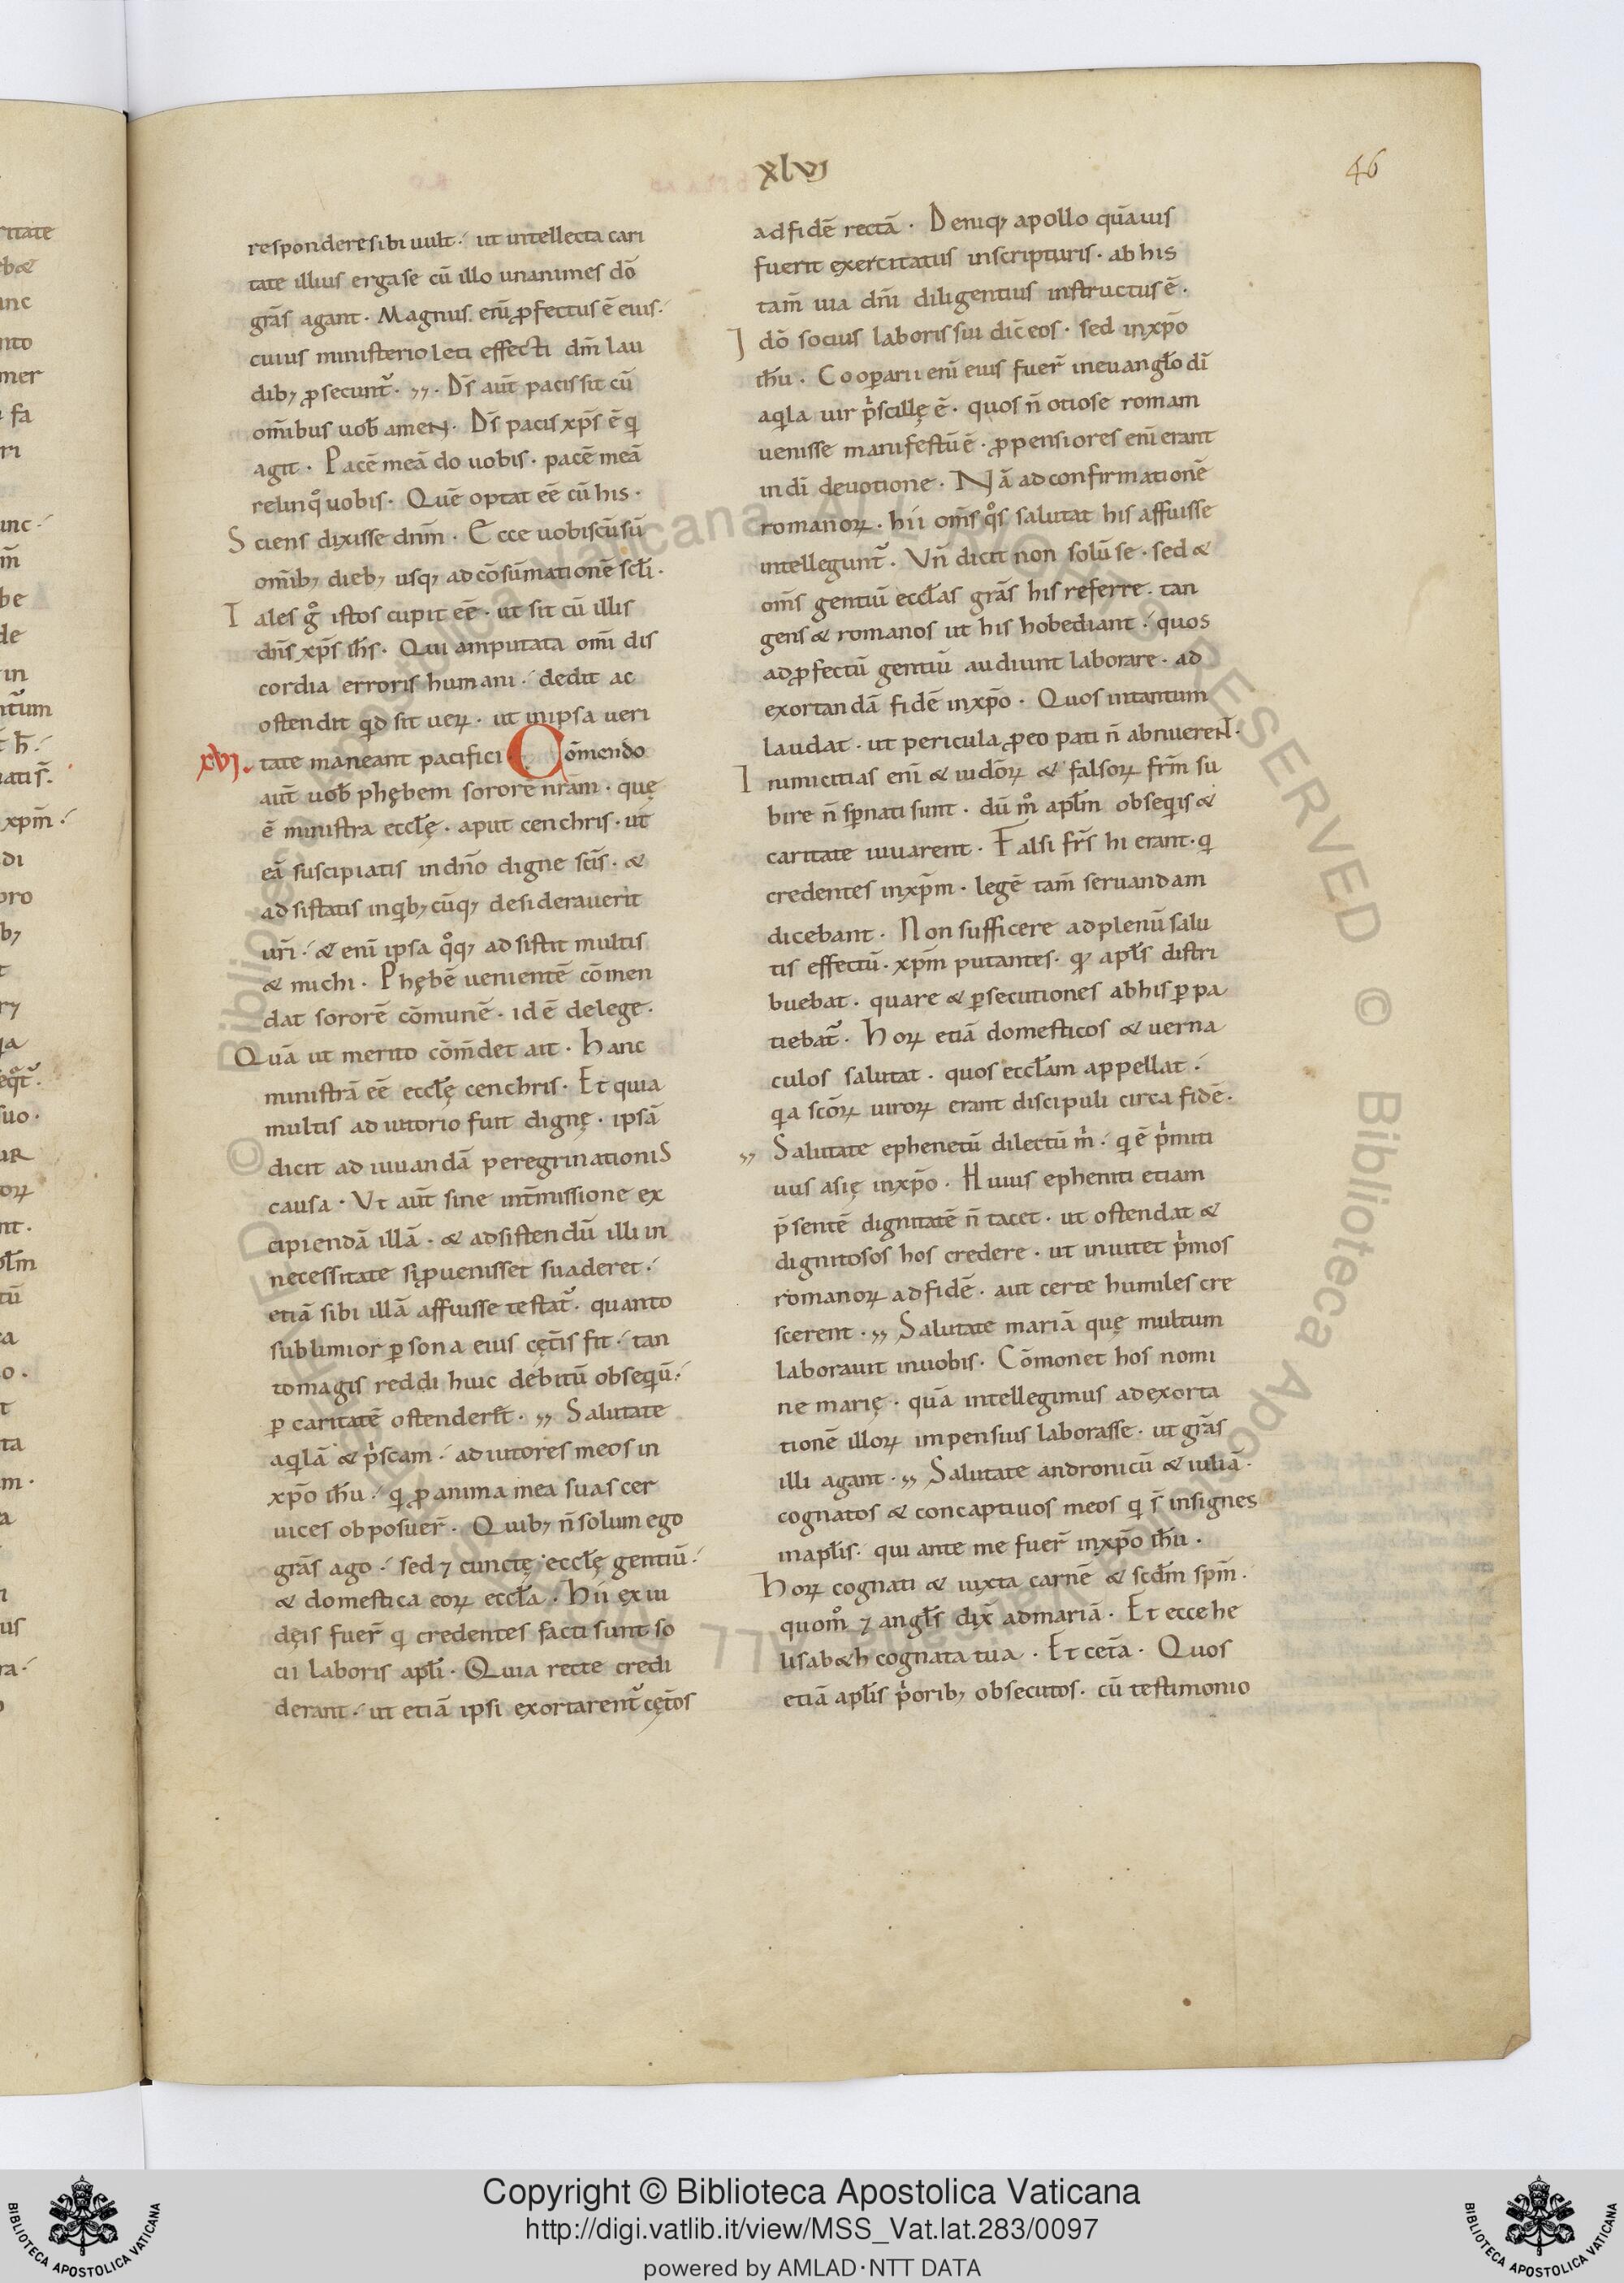 xlvi
46
respondere sibi uult· ut intellecta cari
tate illius erga se cū illo unanimes dō
grās agant· Magnus enī ꝓfectus ē eius·
cuius ministerio leti effecti dm̄ lau
dibꝫ ꝓsecunt᷑· ,,· Ds̄ aut̄ pacis sit cū
om̄ibus uob̄ ameN· Ds̄ pacis xp̄s ē q̄
agit· Pacē meā do uobis· pacē meā
relinqͦ uobis· Quē optat eē cū his·
Sciens dixisse dnm̄· Ecce uobiscū sū
om̄ibꝫ diebꝫ usqꝫ ad cōsūmationē scl̄i·
Tales gͦ istos cupit eē· ut sit cū illis
dn̄s xp̄s ih̄s· Qui amputata om̄i dis
cordia erroris humani· dedit ac
ostendit qd sit ueꝝ· ut in ipsa ueri
xvi. tate maneant pacifici· Cōmendo
aut̄ uob̄ phębem sororē nr̄am· quę
ē ministra eccl̄ę· aput cenchris· ut
eā suscipiatis in dn̄o digne sc̄is· &
adsistatis in qibꝫcūqꝫ desiderauerit
ur̄i· & enī ipsa qͦqꝫ adsistit multis
& michi· Phębē uenientē cōmen
dat sororē cōmunē· id ē de lege·
Quā ut merito cōm̄det ait· Hanc
ministrā eē eccl̄ę cenchris· Et quia
multis adiutorio fuit dignę· ipsā
dicit adiuuandā peregrinationiS
causa· Vt aut̄ sine int̄missione ex
cipiendā illā· & adsistendū illi in
necessitate si ꝓuenisset suaderet·
etiā sibi illā affuisse testat᷑· quanto
sublimior ꝑsona eius cęt̄is fit· tan
to magis reddi huic debitū obseqū·
ꝑ caritatē ostender̄t· ,, Salutate
aqilā & pͥscam· adiutores meos in
xp̄o ih̄u· q ꝓ anima mea suas cer
uices obposuer̄· Quibꝫ n̄ solum ego
grās ago· sed ⁊ cunctę eccl̄ę gentiū·
& domestica eoꝝ eccl̄a· Hii ex iu
dęis fuer̄ q credentes facti sunt so
cii laboris apl̄i· Quia recte credi
derant· ut etiā ipsi exortarent᷑ cęt̄os
ad fidē rectā· Deniqꝫ apollo quāuis
fuerit exercitatus in scripturis· ab his
tam̄ uia dn̄i diligentius instructus ē·
Idō socius laboris sui dic̄ eos· sed in xp̄o
ih̄u· Cooꝑarii enī eius fuer̄ in euangl̄o dī
aqila uir pͥscillę ē· quos n̄ otiose romam
uenisse manifestū ē· ꝓpensiores enī erant
in dī deuotione· Nā ad confirmationē
romanoꝝ· hii om̄s qͦs salutat his affuisse
intellegunt᷑· Vn̄ dicit non solū se· sed &
om̄s gentiū eccl̄as grās his referre· tan
gens & romanos ut his hobediant· quos
ad ꝓfectū gentiū audiunt laborare· ad
exortandā fidē in xp̄o· Quos in tantum
laudat· ut pericula ꝓ eo pati n̄ abnuereNT·
Inimicitias enī & iudōꝝ & falsoꝝ frm̄ su
bire n̄ sꝑnati sunt· dū mͦ apl̄m obseqis &
caritate iuuarent· Falsi frs̄ hi erant· q
credentes in xpm̄· legē tam̄ seruandam
dicebant· Non sufficere ad plenū salu
tis effectū· xpm̄ putantes· qꝫ apl̄s distri
buebat· quare & ꝑsecutiones ab his ꝑpa
tiebat᷑· Hoꝝ etiā domesticos & uerna
culos salutat· quos eccl̄am appellat·
qa scōꝝ uiroꝝ erant discipuli circa fidē·
,, Salutate ephenetū dilectū mͥ· q ē pͥmiti
uus asię in xp̄o· Huius epheniti etiam
p̄sentē dignitatē n̄ tacet· ut ostendat &
dignitosos hos credere· ut inuitet pͥmos
romanoꝝ ad fidē· aut certe humiles cre
scerent· ,, Salutate mariā quę multum
laborauit in uobis· Cōmonet hos nomi
ne marię· quā intellegimus ad exorta
tionē illoꝝ impensius laborasse· ut grās
illi agant· ,, Salutate andronicū & iuliā·
cognatos & concaptiuos meos q s̄ insignes
in apl̄is· qui ante me fuer̄ in xp̄o ih̄u·
Hoꝝ cognati & iuxta carnē & scd̄m spm̄·
quomͦ ⁊ angl̄s dix̄ ad mariā· Et ecce he
lisab&h cognata tua· Et cet̄a· Quos
etiā apl̄is pͥoribꝫ obsecutos· cū testimonio
Copyright © Biblioteca Apostolica Vaticana
http://digi.vatlib.it/view/MSS_Vat.lat.283/0097
powered by AMLAD·NTT DATA